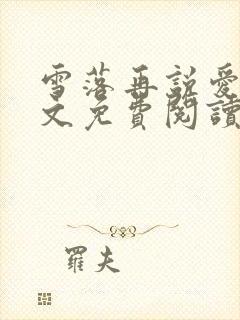 雪落再說愛
文免費閱讀
羅夫